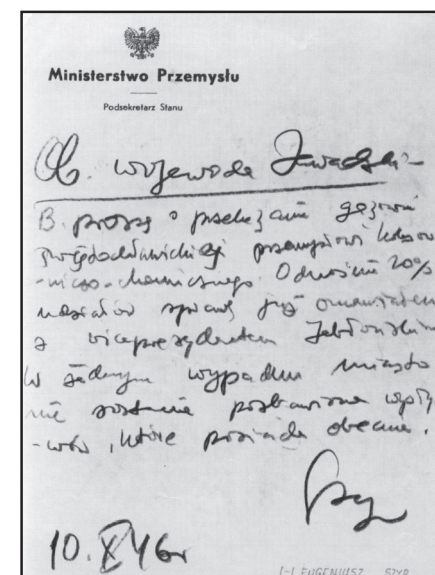 Ministerstwo Przemysłu
Podsekretarz Stanu
Ob. wojewoda Zawadzki
B. proszę o przekazanie gazowni
przemysłowi kokso
-niczo-chemicznego. Odnośnie 20%
udziałów sprawę już omawiałem
z viceprezydentem Jabłońskim
W żadnym wypadku miasto
nie zostanie pozbawione wpły
-wów, które posiada obecnie.
10.X 46r
(-) EUGENIUSZ SZYR